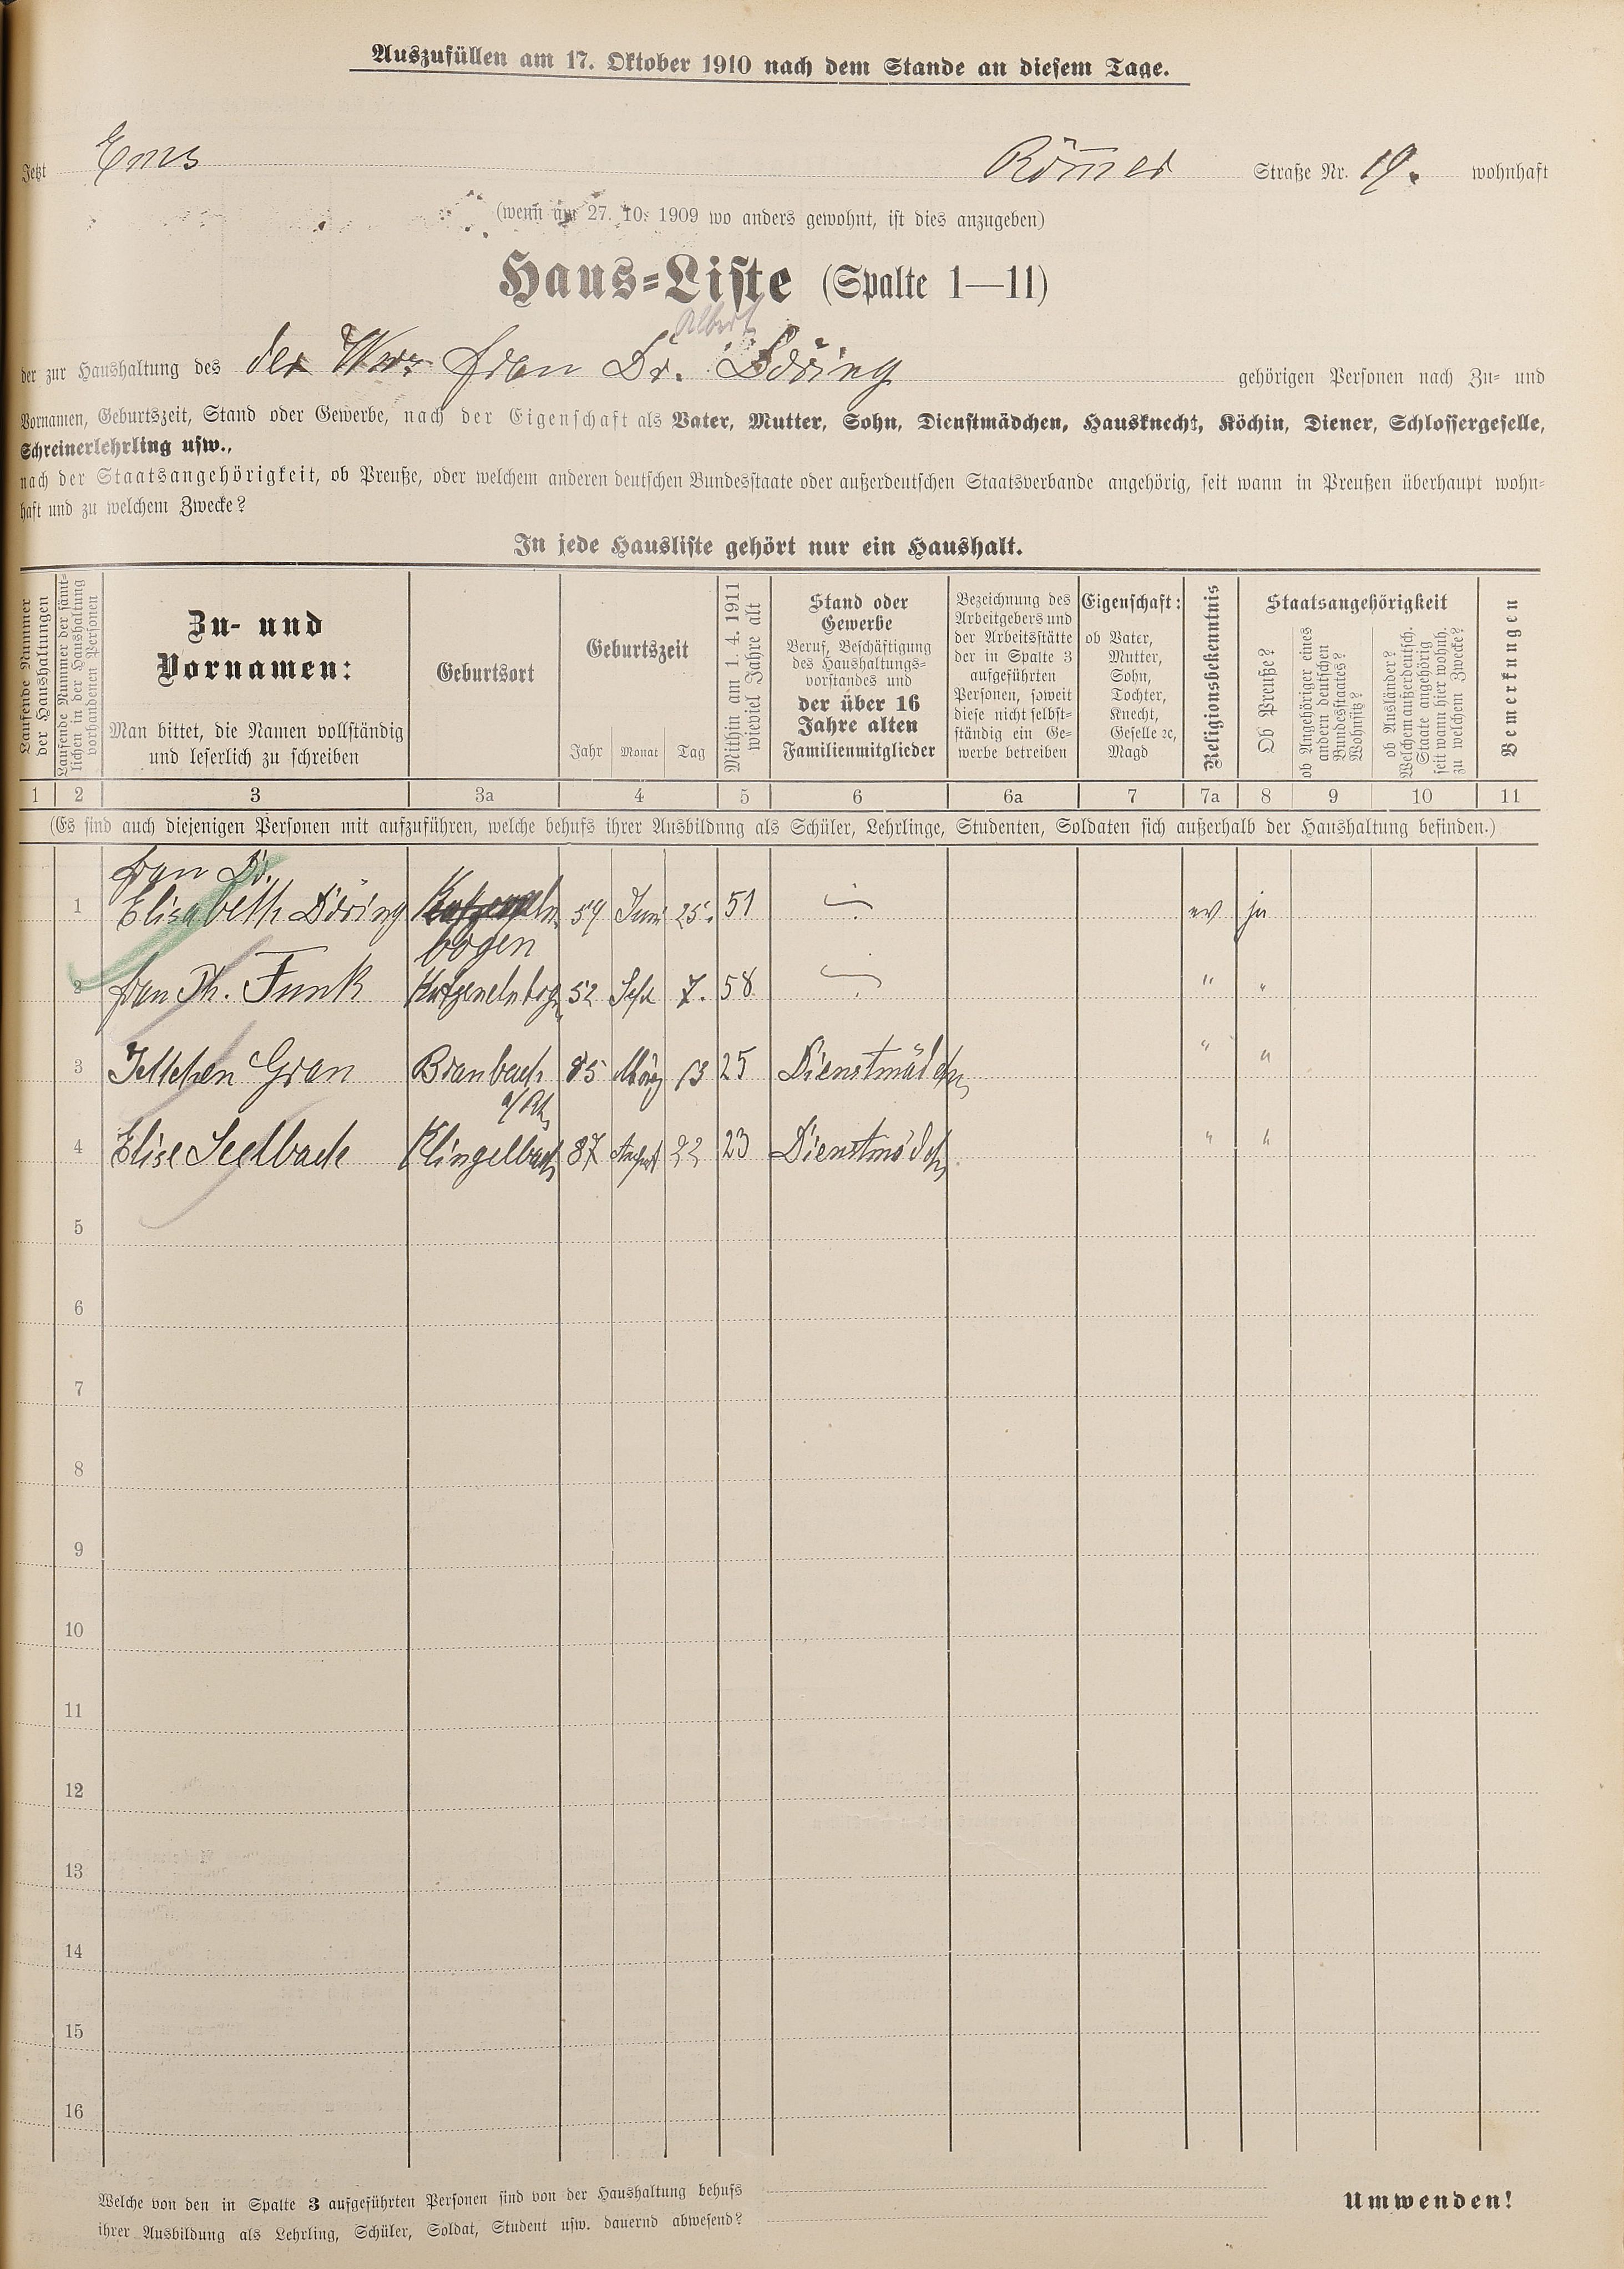 Auszufüllen am 17. Oktober 1910 nach dem Stande an diesem Tage.
Jetzt Ems Römer Straße Nr. 19. wohnhaft
(wenn am 27. 10. 1909 wo anders gewohnt, ist dies anzugeben)
Haus-Liste (Spalte 1—11)
Albert
der zur Haushaltung des der Frau Dr. Döring gehörigen Personen nach Zu- und
Vornamen, Geburtszeit, Stand oder Gewerbe, nach der Eigenschaft als Vater, Mutter, Sohn, Dienstmädchen, Hausknecht, Köchin, Diener, Schlossergeselle,
Schreinerlehrling usw.,
nach der Staatsangehörigkeit, ob Preuße, oder welchem anderen deutschen Bundesstaate oder außerdeutschen Staatsverbande angehörig, seit wann in Preußen überhaupt wohn-
haft und zu welchem Zwecke?
In jede Hausliste gehört nur ein Haushalt.
Laufende Nummer
der Haushaltungen
Laufende Nummer der sämt-
lichen in der Haushaltung
vorhandenen Personen
Zu- und
Vornamen:
Man bittet, die Namen vollständig
und leserlich zu schreiben
Geburtsort
Geburtszeit
Jahr Monat Tag
Mithin am 1. 4. 1911
wieviel Jahre alt
Stand oder
Gewerbe
Beruf, Beschäftigung
des Haushaltungs-
vorstandes und
der über 16
Jahre alten
Familienmitglieder
Bezeichnung des
Arbeitgebers und
der Arbeitsstätte
der in Spalte 3
aufgeführten
Personen, soweit
diese nicht selbst-
ständig ein Ge-
werbe betreiben
Eigenschaft:
ob Vater,
Mutter,
Sohn,
Tochter,
Knecht,
Geselle ꝛc,
Magd
Religionsbekenntnis
Staatsangehörigkeit
Ob Preuße?
ob Angehöriger eines
andern deutschen
Bundesstaates?
Wohnsitz?
ob Ausländer?
Welchem außerdeutsch.
Staate angehörig
seit wann hier wohnh.
zu welchem Zwecke?
Bemerkungen
1 2 3 3a 4 5 6 6a 7 7a 8 9 10 11
(Es sind auch diejenigen Personen mit aufzuführen, welche behufs ihrer Ausbildung als Schüler, Lehrlinge, Studenten, Soldaten sich außerhalb der Haushaltung befinden.)
Frau Dr.
1 Elisabeth Döring Katzeneln 59 Juni 25. 51 ev ja
bogen
2 Frau Ph. Funk Katzenelnbog. 52 Sept 7. 58 " "
3 Jettchen Grau Braubach 85 März 13 25 Dienstmädchen " "
a/Rh
4 Elise Seelbach Klingelbach 87 August 22 23 Dienstmädch " "
5
6
7
8
9
10
11
12
13
14
15
16
Welche von den in Spalte 3 aufgeführten Personen sind von der Haushaltung behufs
ihrer Ausbildung als Lehrling, Schüler, Soldat, Student usw. dauernd abwesend?
Umwenden!